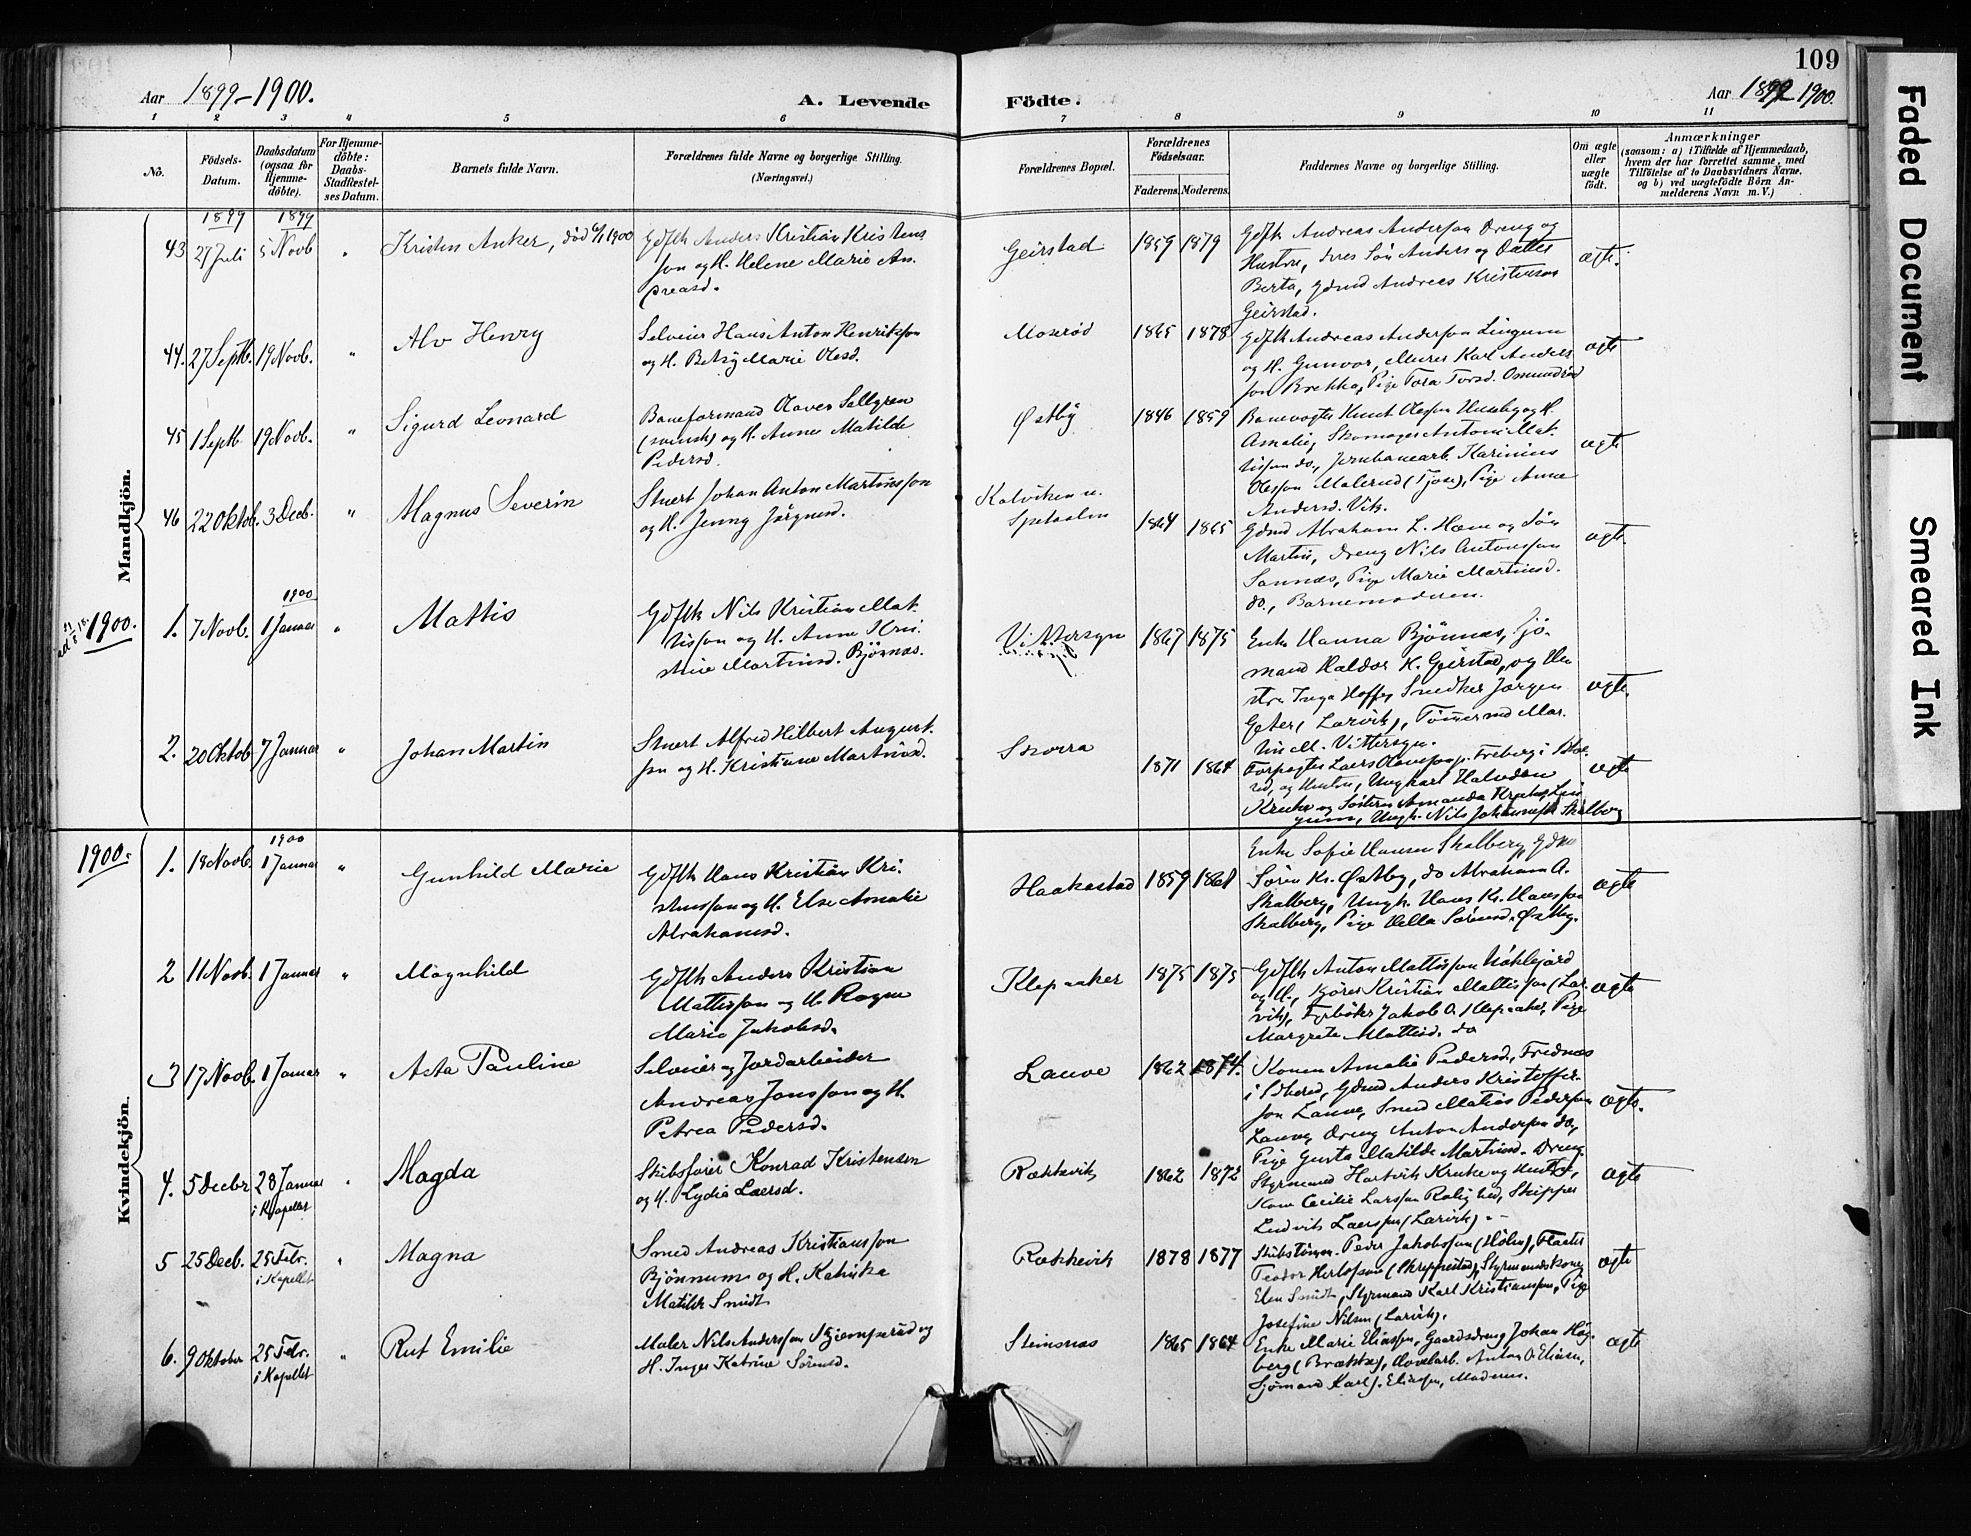 109
Aar 1899-1900. A. Levende Födte. Aar 1899 1900.
1 2 3 4 5 6 7 8 9 10 11
No.
Födsels-
Datum.
Daabsdatum
(ogsaa for
Hjemme-
döbte).
For Hjemme-
döbte:
Daabs-
Stadfæstel-
ses Datum.
Barnets fulde Navn.
Forældrenes fulde Navne og borgerlige Stilling.
(Næringsvei.)
Forældrenes Bopæl.
Forældrenes
Födselsaar.
Faderens. Moderens.
Faddernes Navne og borgerlige Stilling.
Om ægte
eller
uægte
født.
Anmærkninger
(saasom: a) i Tilfælde af Hjemmedaab,
hvem der har forrettet samme, med
Tilföielse af to Daabsvidners Navne,
og b) ved uægtefödte Börn An-
melderens Navn m. V.)
Mandkjön.
1899 1899
43 27 Juli 5 Novb " Kristen Anker, död 6/1 1900
Gdfth Anders Kristian Kristens
son og H. Helene Marie An-
dreasd.
Geirstad 1859 1879
Gdfth Andreas Anderson Dreng og
Hustru, deres Sön Anders og Datter
Berta, Gdmd Andreas Kristenson
Geirstad.
ægte.
44. 27 Septb. 19 Novb. " Alv Henry
Selveier Hans Anton Henrikson
og H. Betsy Marie Olesd.
Moseröd 1865 1878
Gdfth Andreas Anderson Lingum
og H. Gunvor, Murer Karl Anders
son Brekka, Pige Tora Torsd. Omundröd
ægte
45 1 Septb. 19 Novb. " Sigurd Leonard
Baneformand Olaves Sellgren
(svensk) og H. Anne Matilde
Pedersd.
Østby 1846 1859
Banevogter Knut Olesson Huseby og H.
Amalie, Skomager Anton Mat-
tisson do., Jernbanearb. Karinius
Olesson Malerud (Tjose), Pige Anne
Andersd. Vik.
ægte
46 22 Oktob. 3 Decb. " Magnus Severin
Stuert Johan Anton Martinsson
og H. Jenny Jörgnsd.
Kalviken u.
Spetaalen
1864 1865
Gdmd Abraham L. Hem og Sön
Martin, dreng Nils Antonsson
Sannes, Pige Marie Martinsd.
do., Barnemoderen.
ægte.
1900.
1900
1. 7 Novb. 1 Januar " Mattis
Gdfth Nils Kristian Mat-
tisson og H. Anne Kri-
stine Martinsd. Bjönnes.
Vittersyn 1867 1875
Enke Hanna Bjönnes, Sjö-
mand Haldor K. Geirstad, og Hu
stru Inga Hoff, Snedker Jörgen
(Larvik), Tömmermd Mar-
tin M. Vittersyn.
ægte.
2. 20 Oktob 7 Januar " Johan Martin
Stuert Alfred Hilbert August-
son og H. Kristiane Martinsd.
Skorra 1871 1864
Forpagter Laers Olavesson Freberg i
og Hustru, Ungkarl Halvdan
Kruke og Söster Amanda Kruke, Lin
gum, Ungk. Nils Johannesson Skalberg
ægte
Kvindekjön.
1900.
1900
1. 18 Novb. 1 Januar " Gunhild Marie
Gdfth Hans Kristian Kri-
stensson og H. Else Amalie
Abrahamsd.
Haakestad 1859 1861
Enke Sofie Hansen Skalberg, Gdmd
Sören Kr. Østby, do Abraham A.
Skalberg, Ungk. Hans Kr. Hansson
Skalberg, Pige Hella Sörensd. Østby.
ægte
2 11 Novb. 1 Januar " Magnhild
Gdfth Anders Kristian
Mattisson og H. Ragna
Marie Jakobsd.
Klepaaker 1875 1875
Gdfth Anton Mattisson
og H., Kjörer Kristian Mattisson (Lar-
vik), Fyrböter Jakob O. Klepaaker, Pige
Margrete Mattisd. do
ægte
3 17 Novb. 1 Januar " Asta Pauline
Selveier og Jordarbeider
Andreas Jonsson og H.
Petrea Pedersd.
Lauve 1862 1874.
Konen Amalie Pedersd. Frednes
i Idherred, Gdmd Anders Kristoffer-
son Lauve, Smed Matias Pederson
Lauve, Dreng Anton Anderson do,
Pige Gusta Matilde Martinsd.
ægte.
4. 5 Decbr 28 Januar " Magda
i Kapellet
Skibsförer Konrad Kristensen
og H. Lydia Laersd.
Rækkevik 1862 1872
Styrmand Hartvik Kruke og Hustru,
Kone Cecilie Larsson Rolighed, Skipper
Ludvik Laersson (Larvik).
ægte
5 25 Decb. 25 Febr. " Magna
i Kapellet
Smed Andreas Kristiansson
Bjönnum og H. Katinka
Matilde Smidt
Rækkevik 1878 1877
Skibstömm. Peder Jakobsson (Holm),
Teodor Herlofson (Skreppestad), Styrmandskone
Elen Smidt, Styrmand Karl Kristiansson, Pige
Josefine Nilsen (Larvik).
ægte
6. 9 Oktober 25 Febr. " Rut Emilie
i Kapellet
Maler Nils Andersson Kjemperöd og
H. Inger Katrine Sörensd.
Steinsnes 1865 1864
Enke Marie Eliassen, Gaardsdreng Johan Hög-
berg (Brække), Havearb. Anton O. Eliasen,
Sjömand Karl J. Eliassen, Moderen.
ægte
Faded Document
Smeared Ink